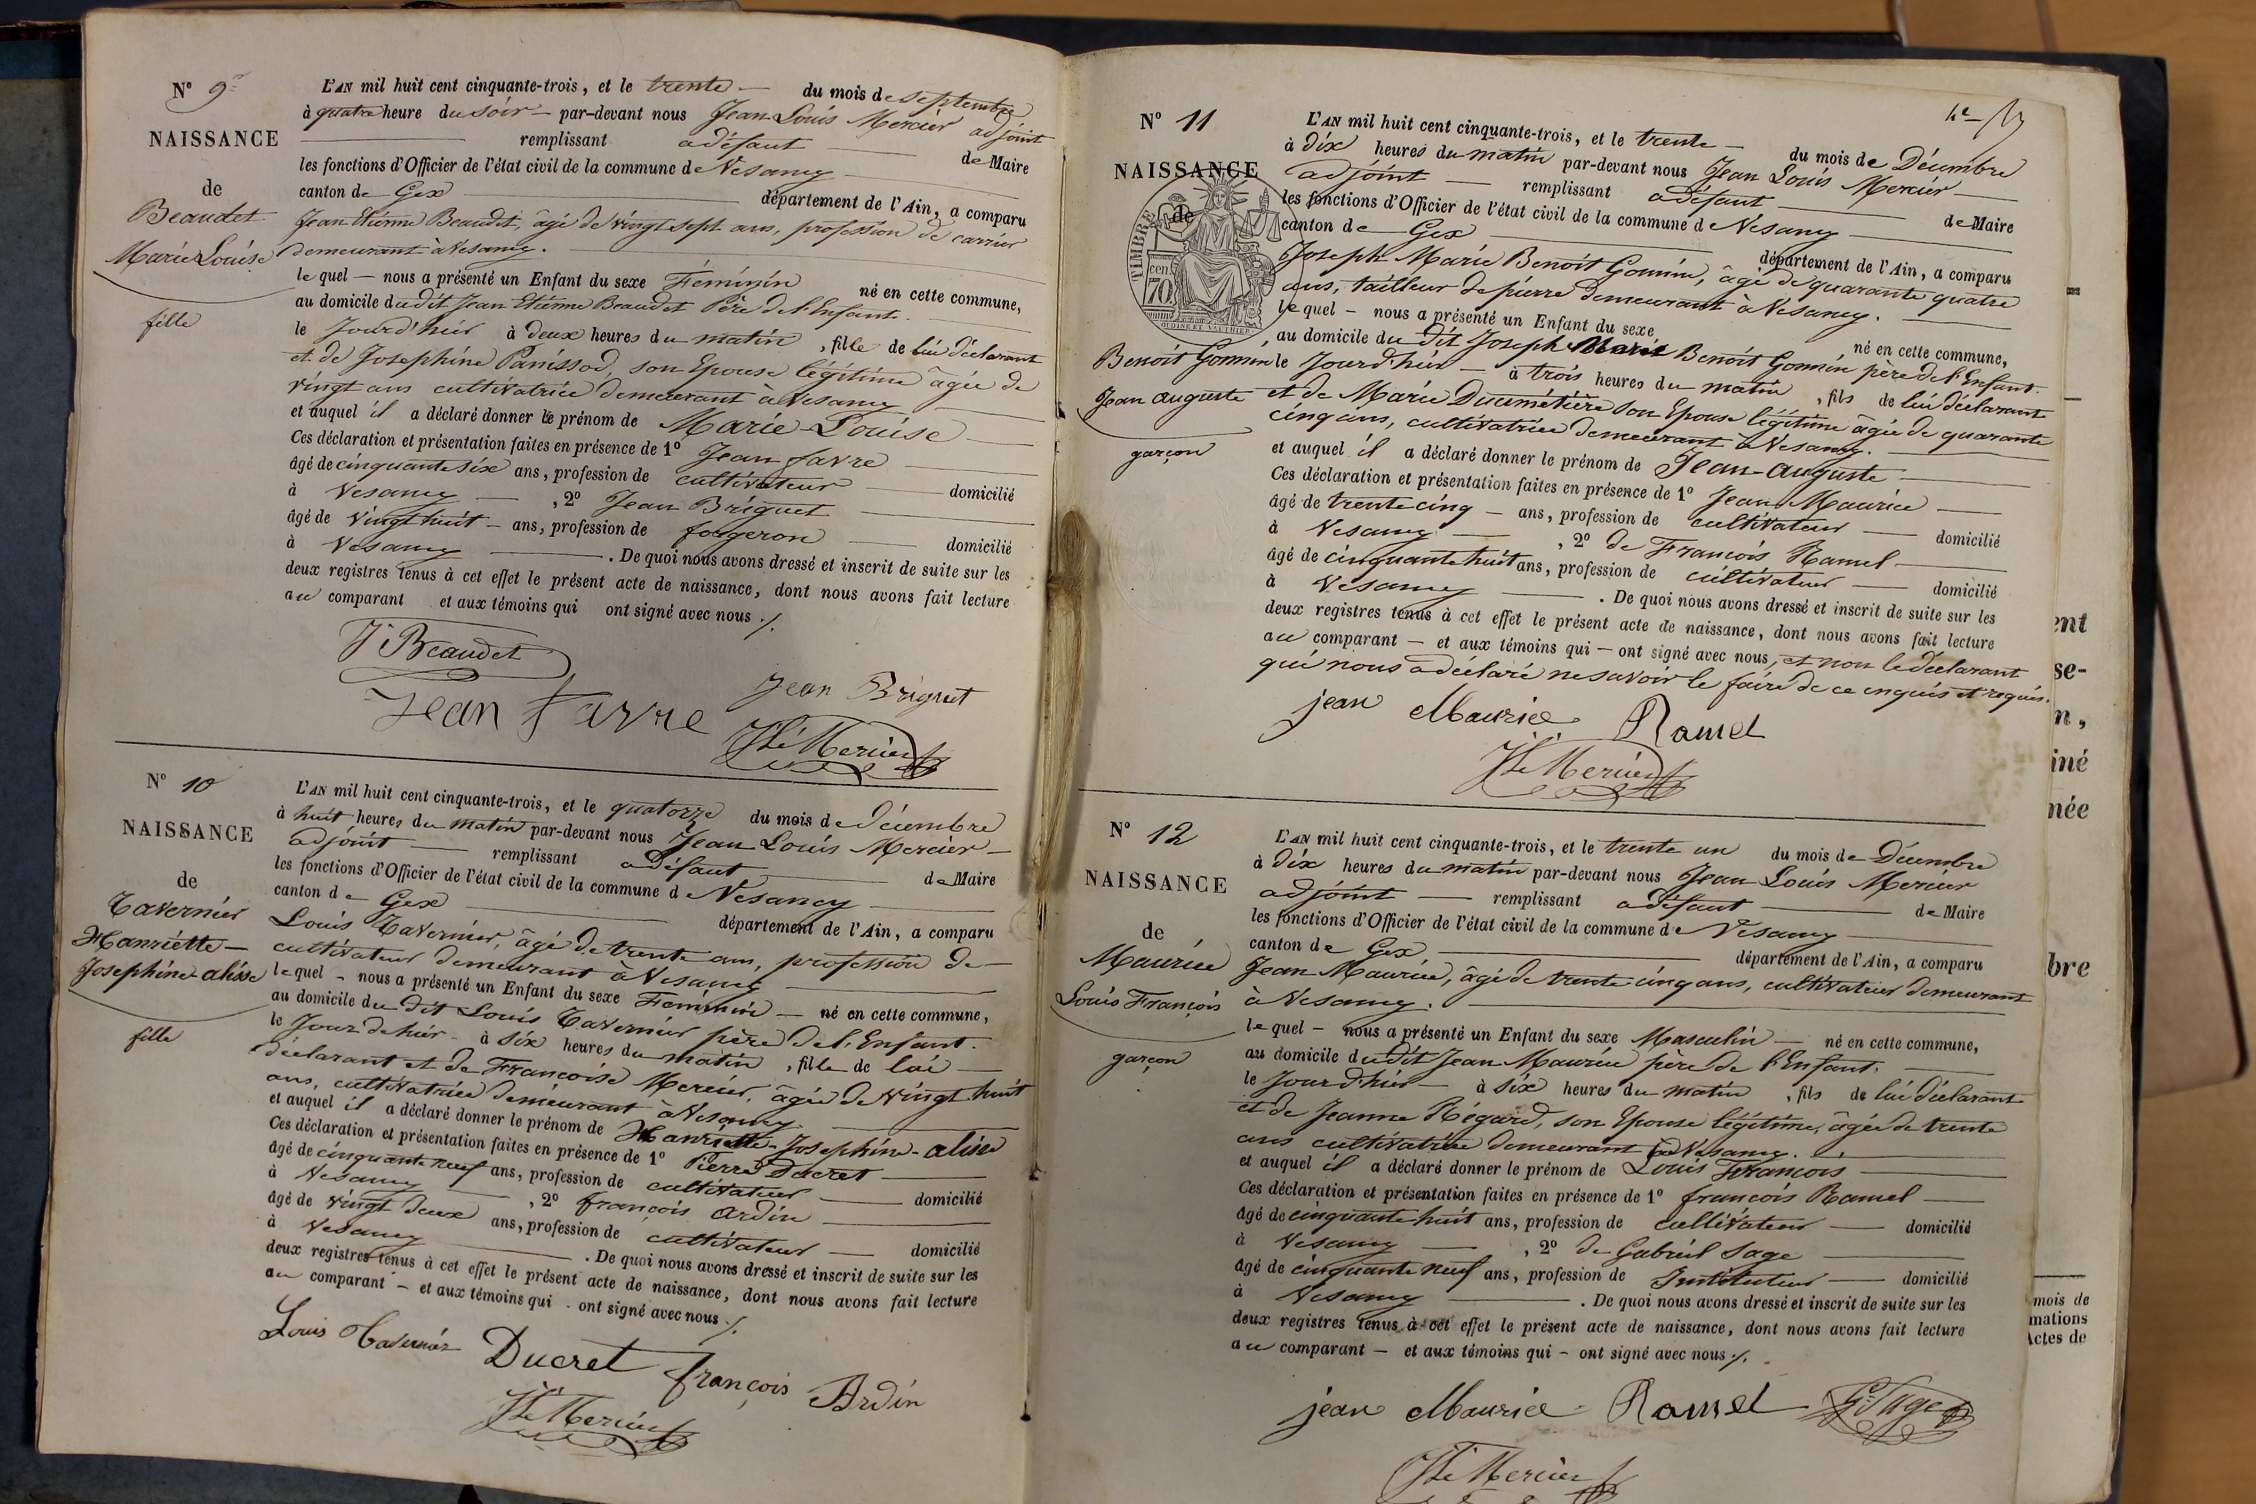 N° 9
NAISSANCE
de
Beaudet
Marie Louise
fille
L'AN mil huit cent cinquante-trois, et le trente du mois de septembre
à quatre heure du soir par-devant nous Jean Louis Mercier adjoint
remplissant adéfaut de Maire
les fonctions d'Officier de l'état civil de la commune de Vesancy
canton de Gex département de l'Ain, a comparu
Jean Etienne Beaudet, âgé de vingt sept ans, profession de carrier
demeurant à Vesancy.
le quel nous a présenté un Enfant du sexe Féminin né en cette commune,
au domicile dudit Jean Etienne Beaudet Père de l'Enfant.
le Jourd'hui à deux heures du matin, fille de lui déclarant
et de Josephine Panissod, son Epouse légitime âgée de
vingt ans cultivatrice demeurant à Vesancy
et auquel il a déclaré donner le prénom de Marie-Louise
Ces déclaration et présentation faites en présence de 1° Jean favre
âgé de cinquante six ans, profession de cultivateur domicilié
à Vesancy, 2° Jean Briguet
âgé de vingt huit ans, profession de forgeron domicilié
à Vesancy. De quoi nous avons dressé et inscrit de suite sur les
deux registres tenus à cet effet le présent acte de naissance, dont nous avons fait lecture
au comparant et aux témoins qui ont signé avec nous ./.
J Beaudet
Jean Briguet
Jean favre
JL Mercier
N° 10
NAISSANCE
de
Tavernier
Hanriette
Josephine-alise
fille
L'AN mil huit cent cinquante-trois, et le quatorze du mois de décembre
à huit heures du matin par-devant nous Jean Louis Mercier
adjoint remplissant adéfaut de Maire
les fonctions d'Officier de l'état civil de la commune de Vesancy
canton de Gex département de l'Ain, a comparu
Louis Tavernier, âgé de trente ans, profession de
cultivateur demeurant à Vesancy
le quel nous a présenté un Enfant du sexe Féminin né en cette commune,
au domicile du dit Louis Tavernier père de l'Enfant.
le Jour de hier à six heures du matin, fille de lui
déclarant et de Francoise Mercier, âgée de vingt huit
ans, cultivatrice demeurant à Vesancy
et auquel il a déclaré donner le prénom de Hanriette-Josephine-alise
Ces déclaration et présentation faites en présence de 1° Pierre Ducret
âgé de cinquante neuf ans, profession de cultivateur domicilié
à Vesancy, 2° françois ardin
âgé de vingt deux ans, profession de cultivateur domicilié
à Vesancy. De quoi nous avons dressé et inscrit de suite sur les
deux registres tenus à cet effet le présent acte de naissance, dont nous avons fait lecture
au comparant et aux témoins qui ont signé avec nous ./.
Louis Tavernier Ducret françois Ardin
JL Mercier
N° 11
NAISSANCE
de
TIMBRE
cen
70
OUDINÉ ET VAUTHIER
Benoit Gonnin
Jean auguste
garçon
L'AN mil huit cent cinquante-trois, et le trente du mois de Décembre
à dix heures du matin par-devant nous Jean Louis Mercier
adjoint remplissant adéfaut de Maire
les fonctions d'Officier de l'état civil de la commune de Vesancy
canton de Gex département de l'Ain, a comparu
Joseph Marie Benoit Gonnin, âgé de quarante quatre
ans, tailleur de pierre demeurant à Vesancy.
le quel nous a présenté un Enfant du sexe né en cette commune,
au domicile du dit Joseph Marie Benoit Gonnin père de l'Enfant.
le Jourd'hui à trois heures du matin, fils de lui déclarant
et de Marie Ducimétière son Epouse légitime âgée de quarante
cinq ans, cultivatrice demeurant à Vesancy.
et auquel il a déclaré donner le prénom de Jean-auguste
Ces déclaration et présentation faites en présence de 1° Jean Maurice
âgé de trente cinq ans, profession de cultivateur domicilié
à Vesancy, 2° de Francois Ramel
âgé de cinquante huit ans, profession de cultivateur domicilié
à Vesancy. De quoi nous avons dressé et inscrit de suite sur les
deux registres tenus à cet effet le présent acte de naissance, dont nous avons fait lecture
au comparant et aux témoins qui ont signé avec nous, et non le déclarant
qui nous a déclaré ne savoir le faire de ce enquis et requis.
jean Maurice Ramel
JL Mercier
N° 12
NAISSANCE
de
Maurice
Louis François
garçon
L'AN mil huit cent cinquante-trois, et le trente un du mois de Décembre
à dix heures du matin par-devant nous Jean Louis Mercier
adjoint remplissant adéfaut de Maire
les fonctions d'Officier de l'état civil de la commune de Vesancy
canton de Gex département de l'Ain, a comparu
Jean Maurice, âgé de trente cinq ans, cultivateur demeurant
à Vesancy.
le quel nous a présenté un Enfant du sexe Masculin né en cette commune,
au domicile dudit Jean Maurice père de l'Enfant.
le Jour d'hier à six heures du matin, fils de lui déclarant
et de Jeanne Régard, son Epouse légitime, âgée de trente
ans cultivatrice demeurant à Vesancy.
et auquel il a déclaré donner le prénom de Louis François
Ces déclaration et présentation faites en présence de 1° francois Ramel
âgé de cinquante huit ans, profession de cultivateur domicilié
à Vesancy, 2° de Gabriel Sage
âgé de cinquante neuf ans, profession de Instituteur domicilié
à Vesancy. De quoi nous avons dressé et inscrit de suite sur les
deux registres tenus à cet effet le présent acte de naissance, dont nous avons fait lecture
au comparant et aux témoins qui ont signé avec nous ./.
jean Maurice Ramel G. Sage
JL Mercier
ent
se-
n,
iné
née
bre
mois de
mations
Actes de